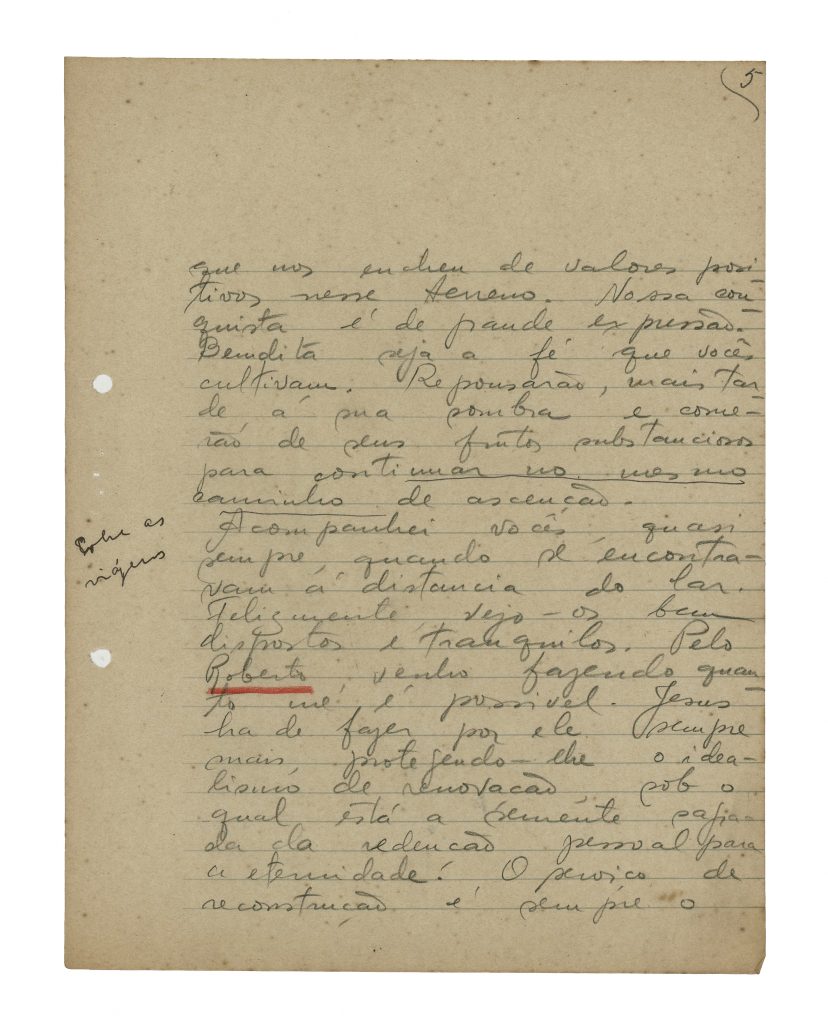 5
que nos encheu de valores posi-
tivos nesse terreno. Nossa con-
quista é de grande expressão.
Bendita seja a fé que vocês
cultivam. Repousarão, mais tar
de á sua sombra e come-
rão de seus frutos substanciosos
para continuar no mesmo
caminho de ascencão.
Acompanhei vocês quasi
sempre, quando se encontra-
vam á distancia do lar.
Felizmente, vejo-os bem
dispostos e tranquilos. Pelo
Roberto, venho fazendo quan-
to me é possivel. Jesus
ha de fazer por ele sempre
mais, protegendo-lhe o idea-
lismo de renovacão, sob o
qual está a semente sagra-
da da redencão pessoal para
a eternidade. O servico de
reconstrucão é sempre o
Sobre as
viágens